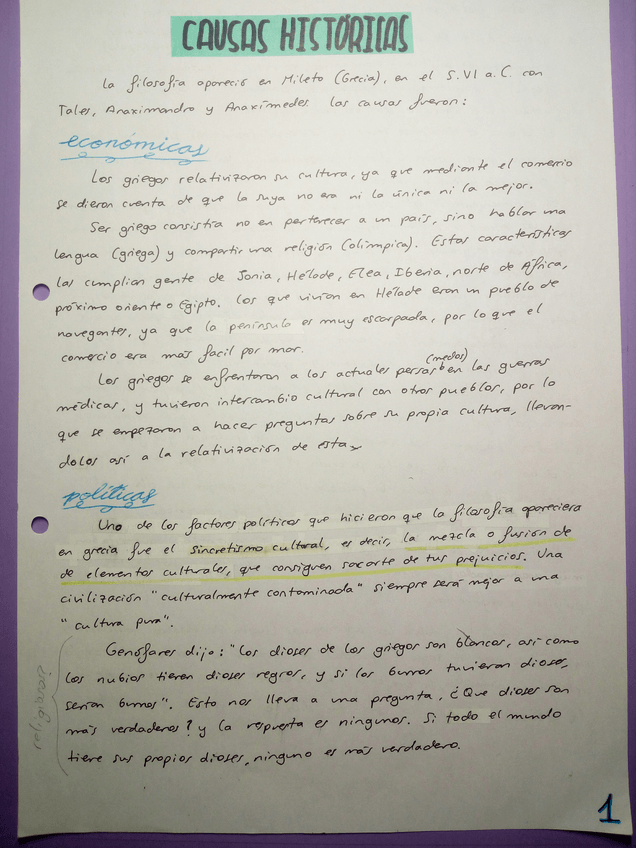 CAUSAS HISTÓRICAS
La filosofía apareció en Mileto (Grecia), en el S.VI a.C. con
Tales, Anaximandro y Anaxímedes las causas fueron:
económicas
Los griegos relativizaron su cultura, ya que mediante el comercio
se dieron cuenta de que la suya no era ni la única ni la mejor.
Ser griego consistía no en pertenecer a un país, sino hablar una
lengua (griega) y compartir una religión (olímpica). Estas características
las cumplían gente de Jonia, Hélade, Elea, Iberia, norte de África,
próximo oriente o Egipto. Los que vivían en Hélade eran un pueblo de
navegantes, ya que la península es muy escarpada, por lo que el
comercio era más facil por mar.
Los griegos se enfrentaron a los actuales persas (medos) en las guerras
médicas, y tuvieron intercambio cultural con otros pueblos, por lo
que se empezaron a hacer preguntas sobre su propia cultura, lleván-
dolos así a la relativización de esta.
políticas
Uno de los factores políticos que hicieron que la filosofía apareciera
en grecia fue el sincretismo cultural, es decir, la mezcla o fusión de
de elementos culturales, que consiguen sacarte de tus prejuicios. Una
civilización "culturalmente contaminada" siempre será mejor a una
"cultura pura".
Genófanes dijo: "Los dioses de los griegos son blancos, así como
los nubios tienen dioses negros, y si los burros tuvieran dioses,
serían burros". Esto nos lleva a una pregunta, ¿Que dioses son
más verdaderos? y la respuesta es ningunos. Si todo el mundo
tiene sus propios dioses, ninguno es más verdadero.
religiosas?
1